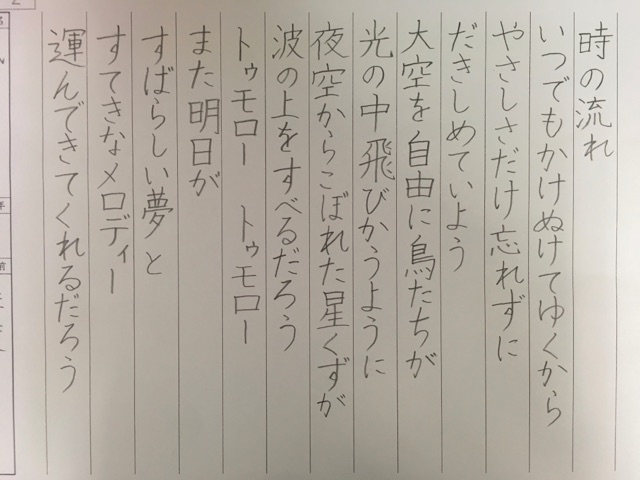 時の流れ
いつでもかけぬけてゆくから
やさしさだけ忘れずに
だきしめていよう
大空を自由に鳥たちが
光の中飛びかうように
夜空からこぼれた星くずが
波の上をすべるだろう
トゥモロー　トゥモロー
また明日が
すばらしい夢と
すてきなメロディー
運んできてくれるだろう